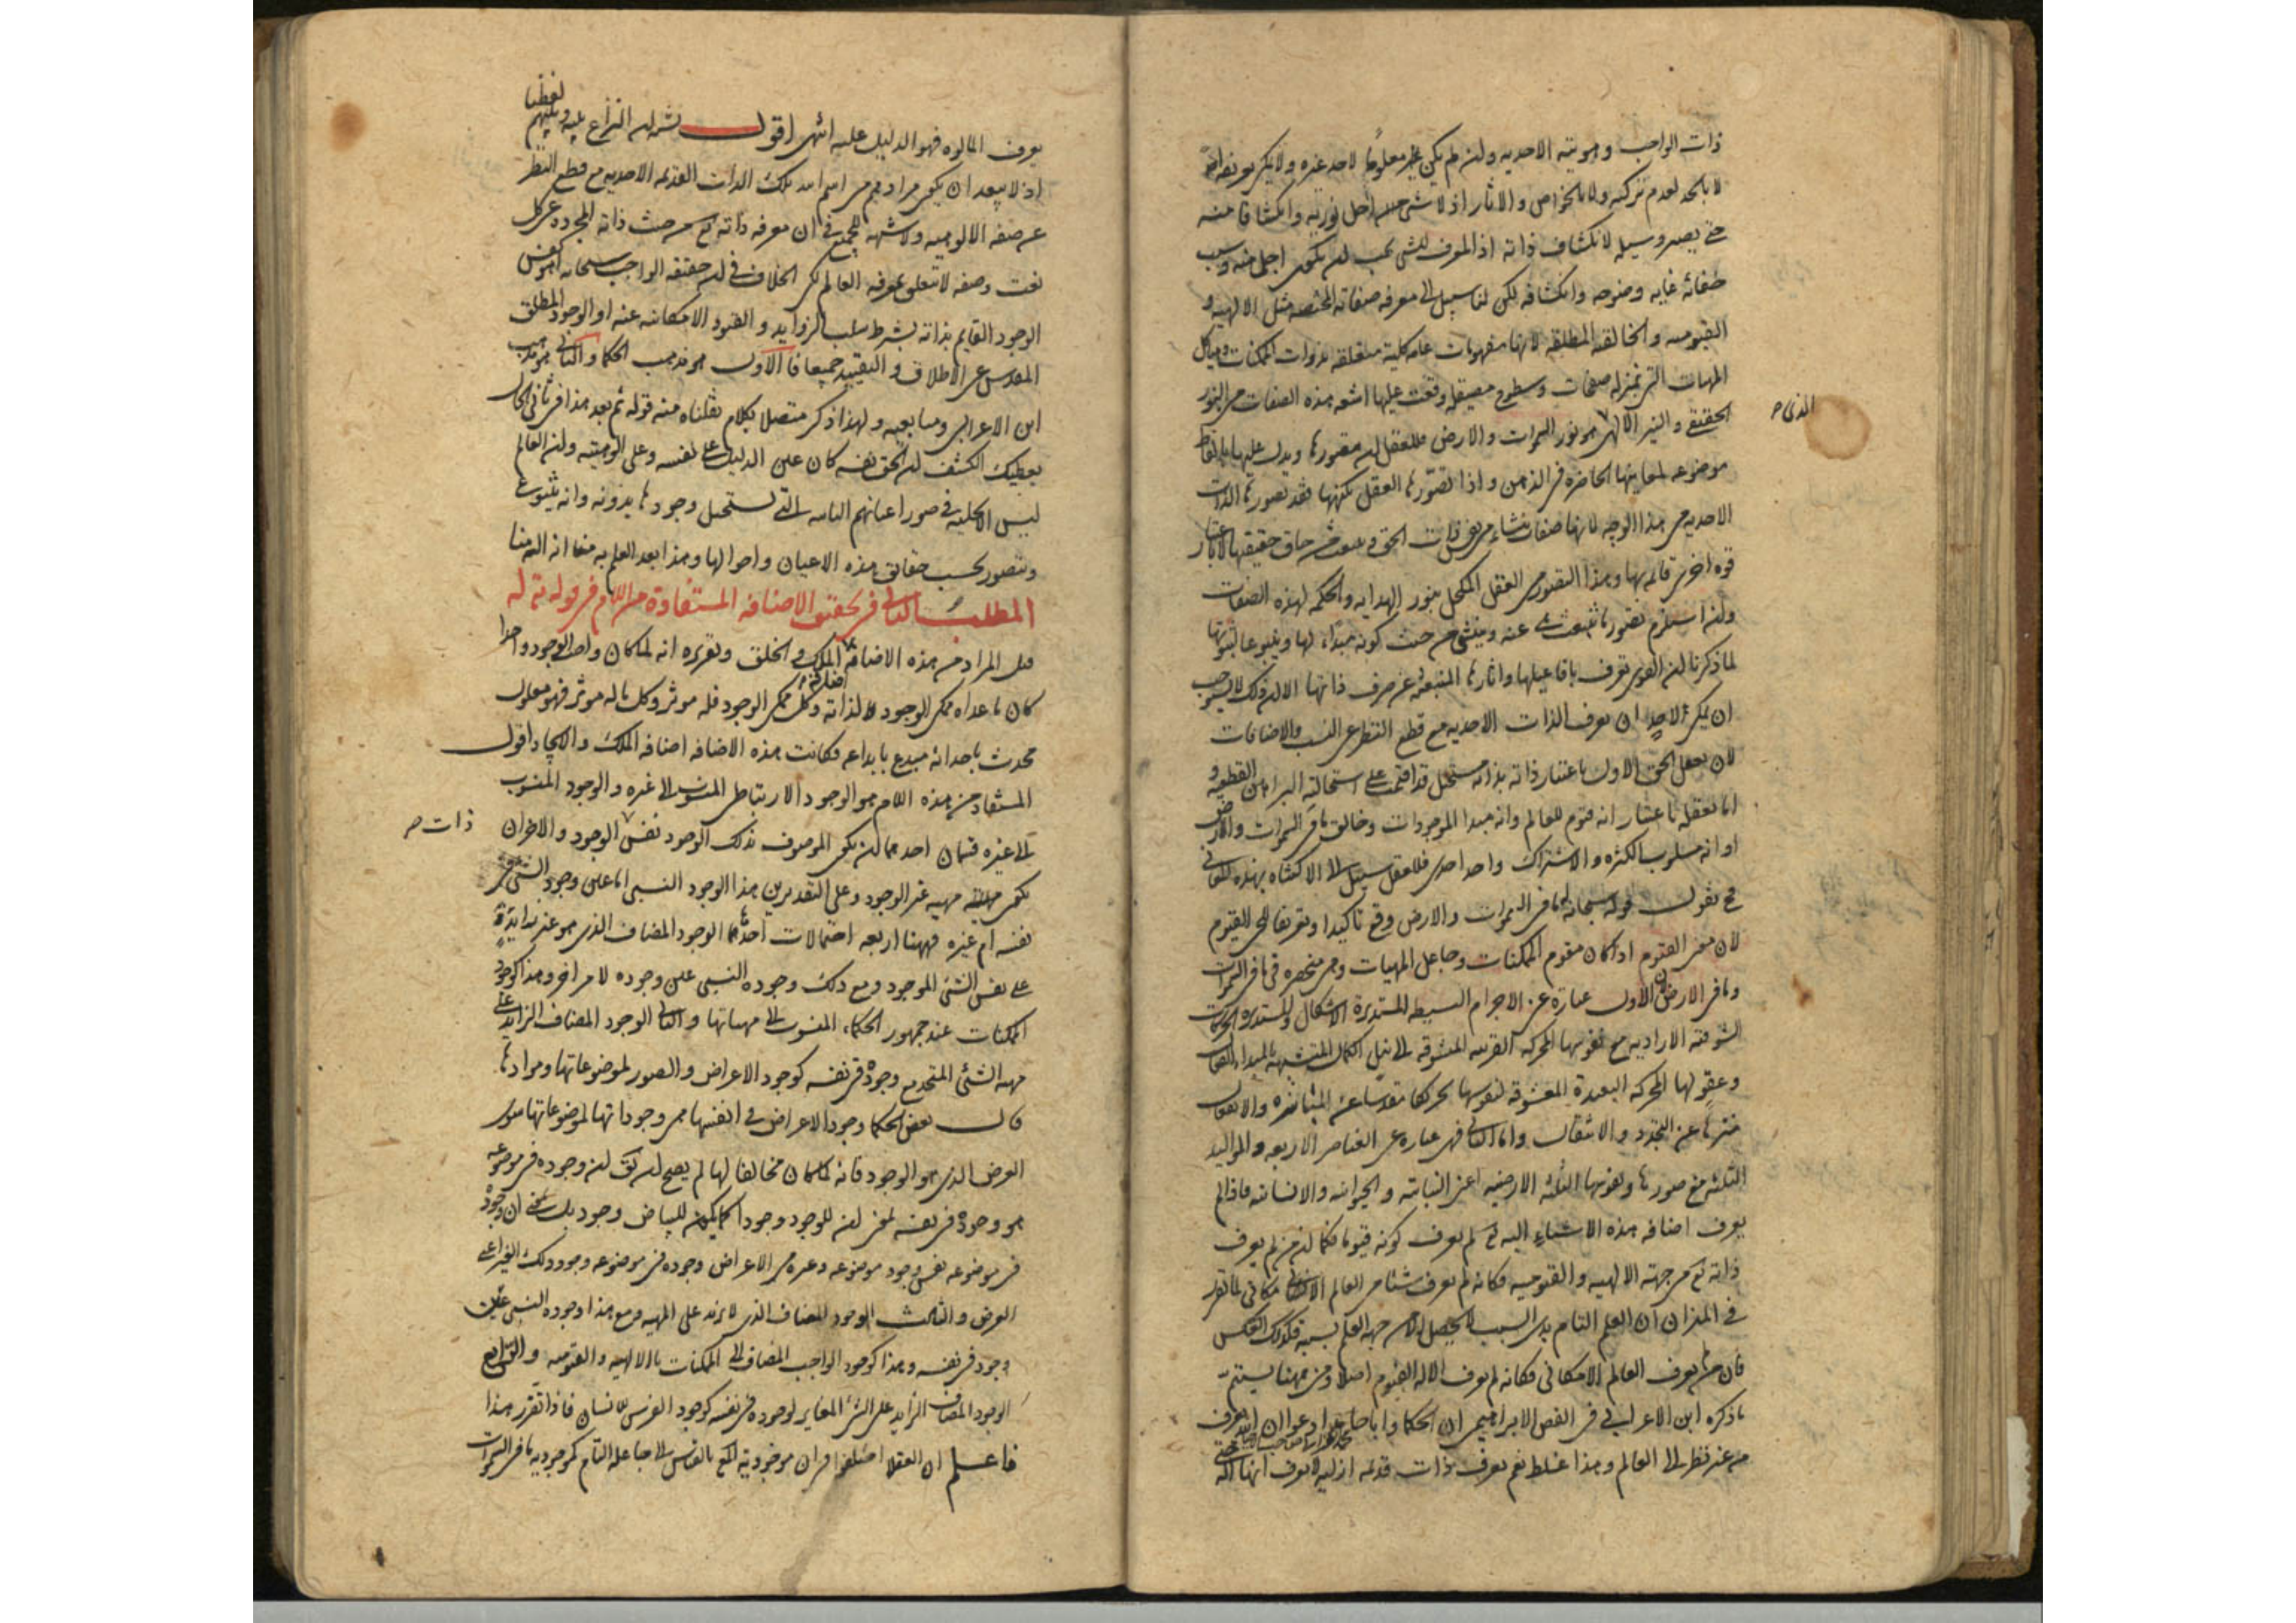 ذات الواجب وهويته الاحديه ولن لم يكن معلوما لاحد غيره ولا يمكن تعريفه
لا بالحد لعدم تركبه ولا بالخواص والاثار اذ لا شئ اجل نوريه وانكشافا منه
حتى يصير وسيله لانكشاف ذاته اذ المعرف للشئ يجب لن يكون اجلى منه وسبب
خفائه غايه وضوحه وانكشافه لكن لنا سبيل الى معرفه صفاته المختصه مثل الالهيه و
القيوميه والخالقيه المطلقه لانها مفهومات عامه كليه متعلقه بذوات الممكنات وهياكل
المهيات التى بمنزله صفحات وسطوح صيقله وقعت عليها اشعه هذه الصفات من النور
الحقيقى والنير الالهى هو نور السموات والارض فللعقل لن يتصورها ويدل عليها بالفاظ
الذى
موضوعه لمعانيها الحاضره فى الذهن واذا تصورها العقل بكنهها فقد تصور الذات
الاحديه من هذا الوجه لانها صفات
قوه اخرى قائمه بها وهذا التصور من العقل المكحل بنور الهدايه والحكمه لهذه الصفات
ولن استلزم تصور ما تنبعث عنه وينشى من حيث كونه مبداء لها وينبوعا لثبوتها
لما ذكرنا لن القوى تعرف بافاعيلها واثارها المنبعثه عن صرف ذاتها الا لن ذلك لا يستوجب
ان يمكن لاحد ان يعرف الذات الاحديه مع قطع النظر عن النسب والاضافات
لان تعقل الحق الاول باعتبار ذاته بذاته مستحيل قد اقيمت على استحالته البراهين القطعيه و
اما تعقله باعتبار انه قيوم للعالم وانه مبدا الموجودات وخالق ما فى السموات والارض
او انه مسلوب الكثره والاشتراك واحد احدى فللعقل سبيل الى الاكتناه بهذه المعانى
فح نقول قوله سبحانه له ما فى السموات والارض وقع تاكيدا وتعريفا للحى القيوم
لان معنى القيوم اذا كان مقوم الممكنات وجاعل المهيات وهى منحصره فى ما فى السموات
وما فى الارض لان الاول عباره عن الاجرام البسيطه المستديرة الاشكال والمستديره الحركات
الشوقيه الاراديه مع نفوسها المحركه القريبه المشوقه الى نيل الكمال المتشبهه بالمبداء الفعال
وعقولها المحركه البعيدة المعشوقه لنفوسها تحريكا مقدسا عن المباشره والانفعال
منزها عن التجدد والانتقال واما الثانى فهى عباره عن العناصر الاربعه والمواليد
الثلثه مع صورها ونفوسها الثلثه الارضيه اعنى النباتيه والحيوانيه والانسانيه فاذا لم
يعرف اضافه هذه الاشياء اليه تع لم يعرف كونه قيوما فكما لن من لم يعرف
ذاته تع من جهته الالهيه والقيوميه فكانه لم يعرف شئا من العالم الامكانى لما تقرر
فى الميزان ان العلم التام بذى السبب لا يحصل الا من جهه العلم بسببه فكذلك العكس
فان من لم يعرف العالم الامكانى فكانه لم يعرف الاله القيوم اصلا ومن ههنا يستتم
ما ذكره ابن الاعرابى فى الفص الابراهيمى ان الحكما وابا حامد ادعوا ان الله يعرف
من غير نظر الى العالم وهذا غلط نعم يعرف ذات قديمه ازليه لا يعرف انها اله
يعرف المالوه فهو الدليل عليه انتهى اقول يشبه لن النزاع بينه وبينهم لفظيا
اذ لا يبعد ان يكون مرادهم من اسم الله تلك الذات القديمه الاحديه مع قطع النظر
عن صفه الالوهيه ولا شبهه للجميع فى ان معرفه ذاته تع من حيث ذاته المجرده عن كل
نعت وصفه لا تتعلق بمعرفه العالم لكن الخلاف فى لن حقيقه الواجب سبحانه اهو نفس
الوجود القايم بذاته بشرط سلب الزوايد والقيود الامكانيه عنه او الوجود المطلق
المقدس عن الاطلاق والتقييد جميعا فالاول هو مذهب الحكما والثانى هو مذهب
ابن الاعرابى ومتابعيه ولهذا ذكر متصلا بكلام نقلناه منه قوله ثم بعد هذا فى ثانى الحال
يعطيك الكشف لن الحق نفسه كان عين الدليل على نفسه وعلى الوهيته ولن العالم
ليس الا تجليه فى صور اعيانهم الثابته التى يستحيل وجودها بدونه وانه يتنوع
ويتصور بحسب حقائق هذه الاعيان واحوالها وهذا بعد العلم به منا انه اله لنا
المطلب الثانى فى تحقيق الاضافه المستفادة من اللام فى قوله تع له
قيل المراد من هذه الاضافه اضافه الملك والخلق وتقريره انه لما كان واجب الوجود واحدا
كان ما عداه ممكن الوجود لذاته وكل ممكن الوجود فله موثر وكل ما له موثر فهو معلول
محدث باحداثه مبدع بابداعه فكانت هذه الاضافه اضافه الملك والايجاد اقول
المستفاد من هذه اللام هو الوجود الارتباطى المنسوب الى غيره والوجود المنسوب
الى غيره قسمان احدهما لن يكون الموصوف بذلك الوجود نفس الوجود والاخر ان
ذات
يكون مهيه غير الوجود وعلى التقديرين هذا الوجود النسبى اما عين وجود الشئ فى
نفسه ام غيره فههنا اربعه احتمالات احدها الوجود المضاف الذى هو غير زايد
على نفس الشئ الموجود ومع ذلك وجوده النسبى عين وجوده لا مر اخر وهذا كوجود
الممكنات عند جمهور الحكماء المنسوب الى مهياتها والثانى الوجود المضاف الزايد على
مهيه الشئ المتحد مع وجوده فى نفسه كوجود الاعراض والصور لموضوعاتها وموادها
قال بعض الحكما وجود الاعراض فى انفسها هى وجوداتها لموضوعاتها سوى
العرض الذى هو الوجود فانه لما كان مخالفا لها لم يصح لن يق لن وجوده فى موضوعه
هو وجوده فى نفسه بمعنى لن للوجود وجودا كما يكون للبياض وجود بل بمعنى ان وجوده
فى موضوعه نفس وجود موضوعه وغيره من الاعراض وجوده فى موضوعه وجود ذلك الغير اعنى
العرض والثالث الوجود المضاف الذى لا يزيد على المهيه ومع هذا وجوده النسبى عين
وجوده فى نفسه وهذا كوجود الواجب المضاف الى الممكنات بالالهيه والقيوميه والرابع
الوجود المضاف الزايد على الشئ المغاير لوجوده فى نفسه كوجود الفرس للانسان فاذا تقرر هذا
فاعلم ان العقلا اختلفوا فى ان موجوديه الممكن بالقياس الى جاعله التام كموجوديه ما فى السموات